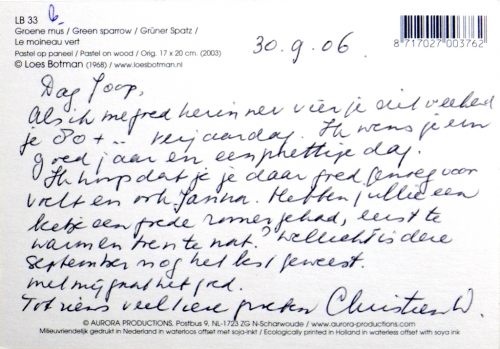 LB 33
Groene mus / Green sparrow / Grüner Spatz /
Le moineau vert
Pastel op paneel / Pastel on wood / Orig. 17 x 20 cm. (2003)
© Loes Botman (1968) / www.loesbotman.nl
8 717027 003762
30.9.06.
Dag Joop,
Als ik me goed herinner vier je dit weekend
je 80+.. verjaardag. Ik wens je een
goed jaar en een prettige dag.
Ik hoop dat je je daar goed genoeg voor
voelt en ook Janna. Hebben jullie een
beetje een goede zomer gehad, eerst te
warm en toen te nat? Wellicht is deze
september nog het best geweest.
Met mij gaat het goed.
Tot ziens veel lieve groeten Christien W.
© AURORA PRODUCTIONS, Postbus 9, NL-1723 ZG N-Scharwoude / www.aurora-productions.com
Milieuvriendelijk gedrukt in Nederland in waterloos offset met soja-inkt / Ecologically printed in Holland in waterless offset with soya ink